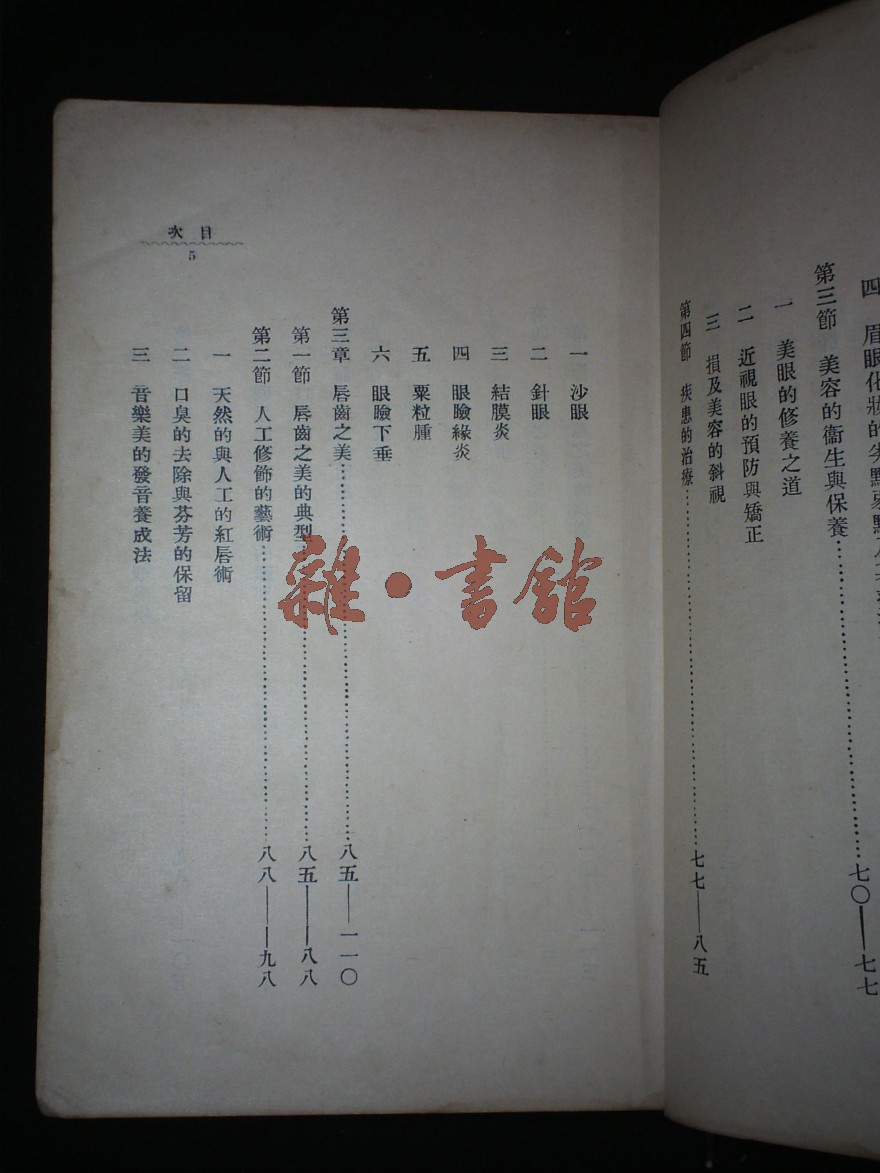 四 眉眼化妝的
第三節 美容的衞生與保養……七〇——七七
一 美眼的修養之道
二 近視眼的預防與矯正
三 損及美容的斜視
第四節 疾患的治療……七七——八五
一 沙眼
二 針眼
三 結膜炎
四 眼瞼緣炎
五 粟粒腫
六 眼瞼下垂
第三章 唇齒之美……八五——一一〇
第一節 唇齒之美的典型……八五——八八
第二節 人工修飾的藝術……八八——九八
一 天然的與人工的紅唇術
二 口臭的去除與芬芳的保留
三 音樂美的發音養成法
次目
5
雜·書館